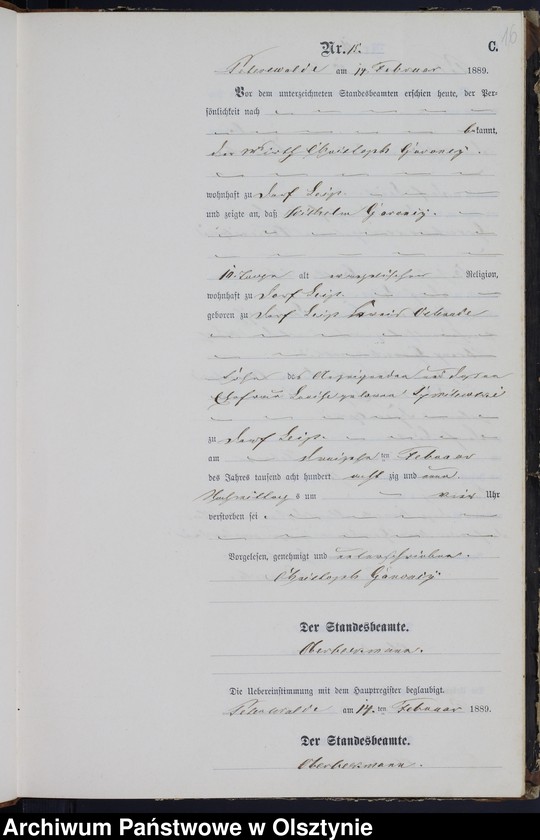 16
Nr. 18. C.
am 14 Februar 1889.
Vor dem unterzeichneten Standesbeamten erschien heute, der Per-
sönlichkeit nach
bekannt,
der Wirth Christoph
wohnhaft zu Dorf Leip
und zeigte an, daß Wilhelm
10 Tage alt evangelischer Religion,
wohnhaft zu Dorf Leip
geboren zu Dorf Leip Kreis Osterode
Sohn des Anzeigenden und dessen
Ehefrau Louise geborene
zu Dorf Leip
am ten Februar
des Jahres tausend acht hundert acht zig und neun
Nachmittags um vier Uhr
verstorben sei.
Vorgelesen, genehmigt und unterschrieben.
Christoph
Der Standesbeamte.
Oberbeckmann.
Die Uebereinstimmung mit dem Hauptregister beglaubigt.
am 14.ten Februar 1889.
Der Standesbeamte.
Oberbeckmann.
Archiwum Państwowe w Olsztynie